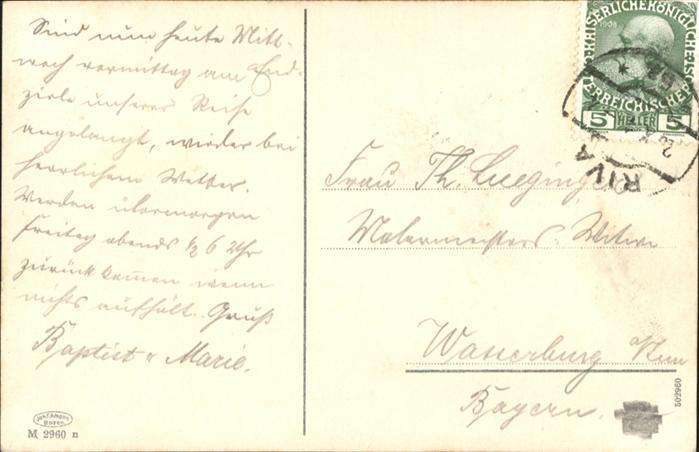 Sind nun heute Mitt-
woch vormittag am End-
ziele unserer Reise
angelangt, wieder bei
herrlichem Wetter.
Werden übermorgen
Freitag abends 6 Uhr
zurück kommen wenn
nichts aufhält. Gruß
Baptist u Marie.
M. 2960 n
KAISERLICHEKÖNIGLICHE
1908
ÖSTERREICHISCHE
5 HELLER 5
RIVA
Frau Th.
Malermeisters Witwe
Wasserburg a/Inn
Bayern.
502960